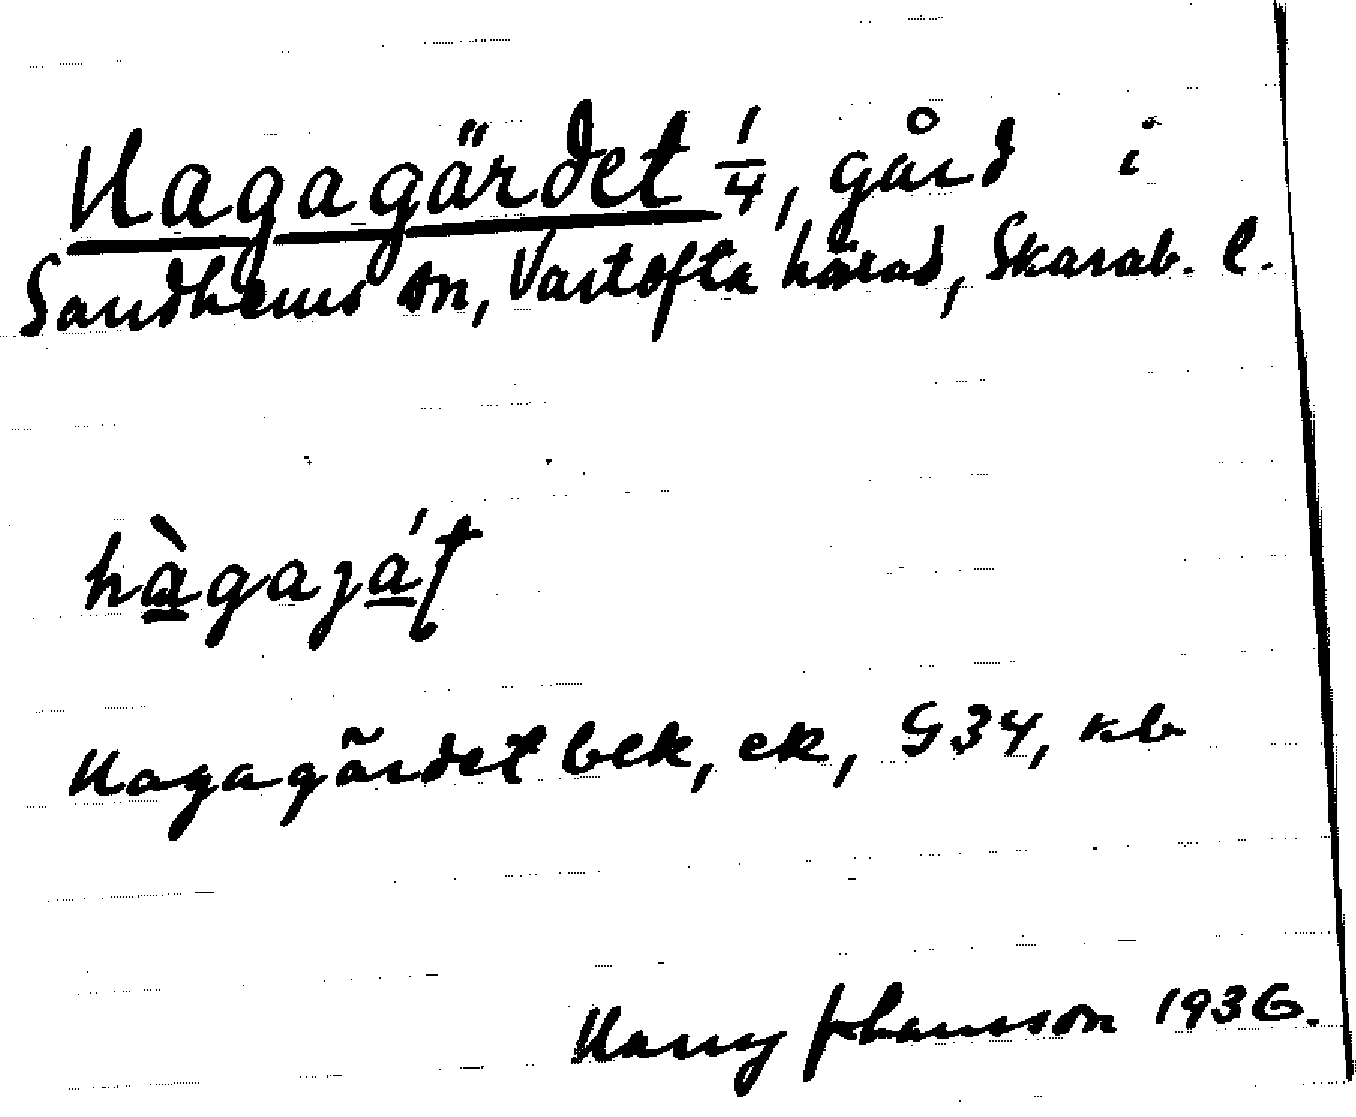 Hagagärdet 1/4, gård i
Sandhems sn, Vartofta härad, Skarab. l.
hàgajáţ
Hagagärdet bek, ek, G34, kb
Harry Johansson 1936.